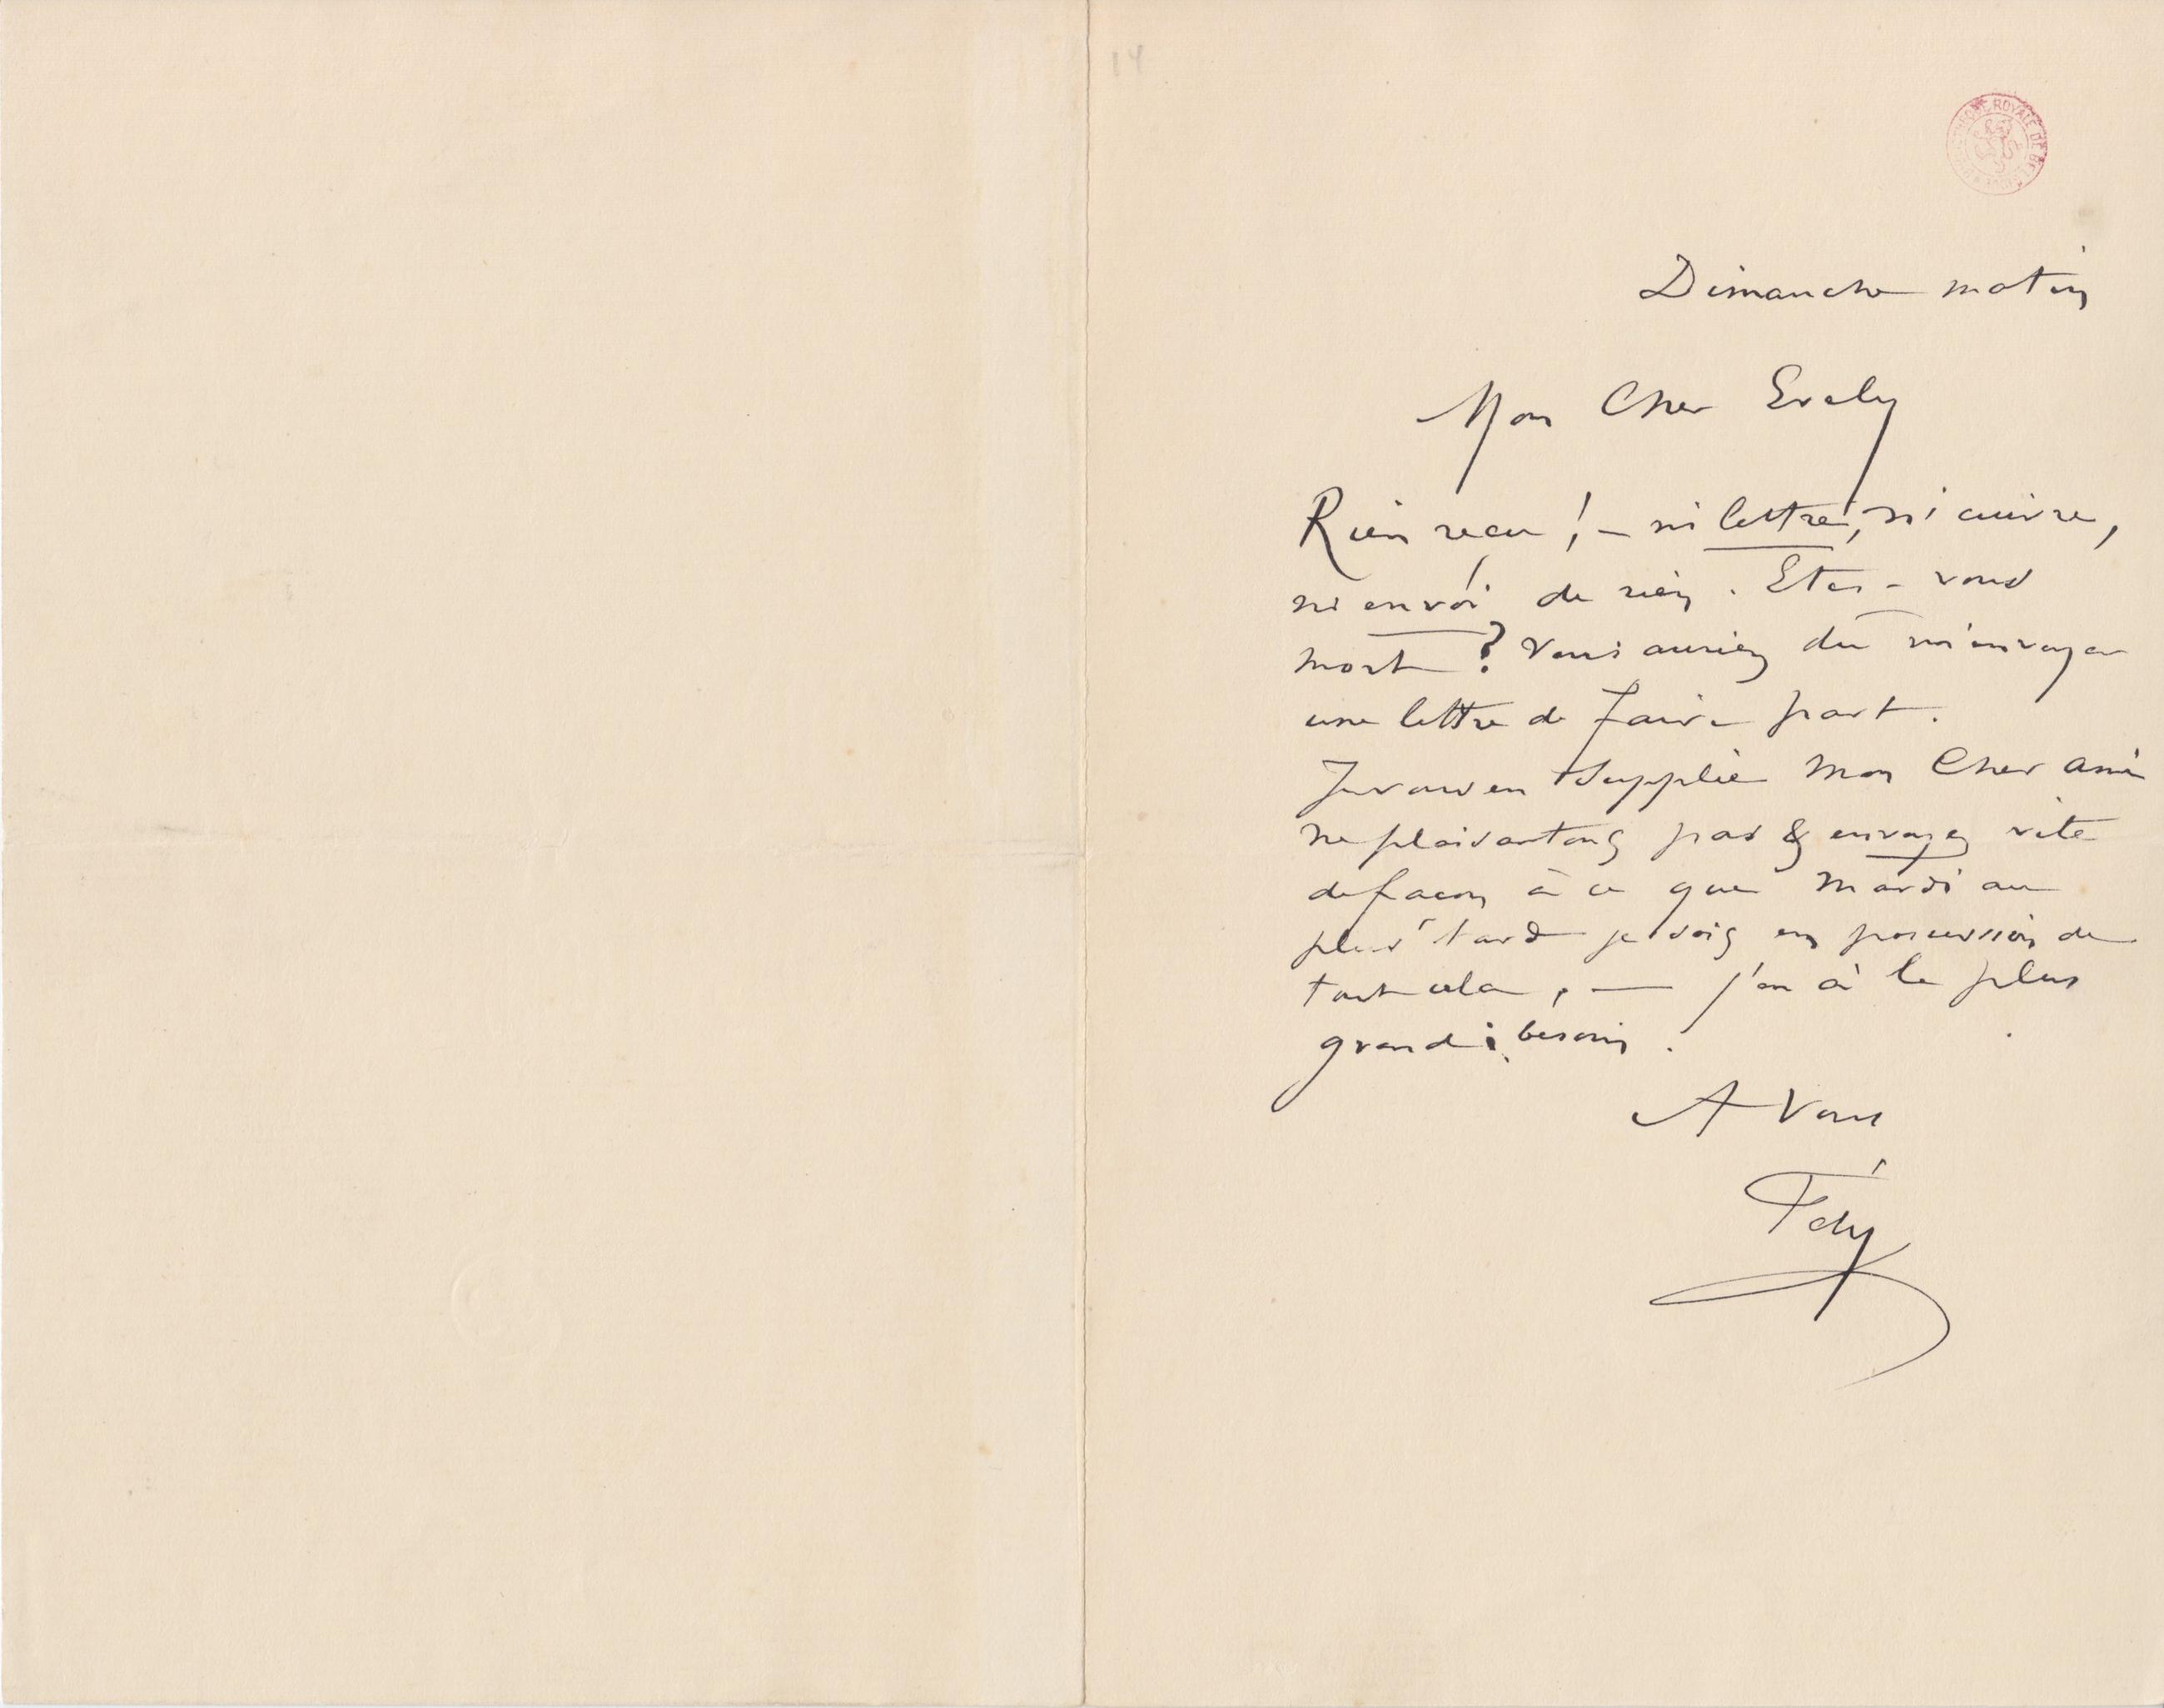 14
BIBLIOTHEQUE ROYALE DE BELGIQUE
Dimanche matin
Mon Cher Evely
Rien recu ! – ni lettre, ni cuivre,
ni envoi de rien. Etes-vous
mort ? Vous auriez dû m'envoyer
une lettre de faire part.
Je vous en supplie Mon Cher ami
ne plaisantons pas & envoyez vite
de facon à ce que Mardi au
plus tard je sois en possession de
tout cela, — j'en ai le plus
grand besoin.
A Vous
Fély